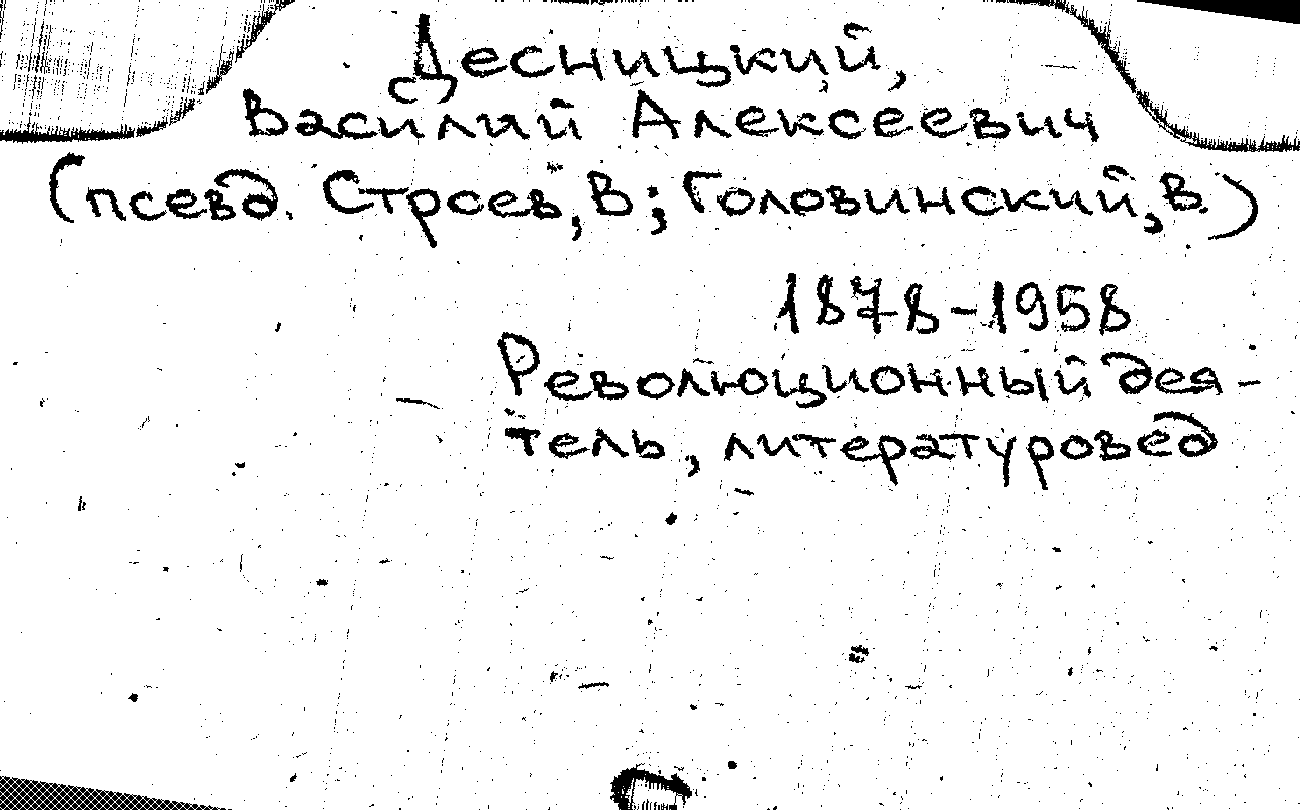 Десницкий,
Василий Алексеевич
(псевд. Строев, В; Головинский, В.)
1878-1958
Революционный дея-
тель, литературовед